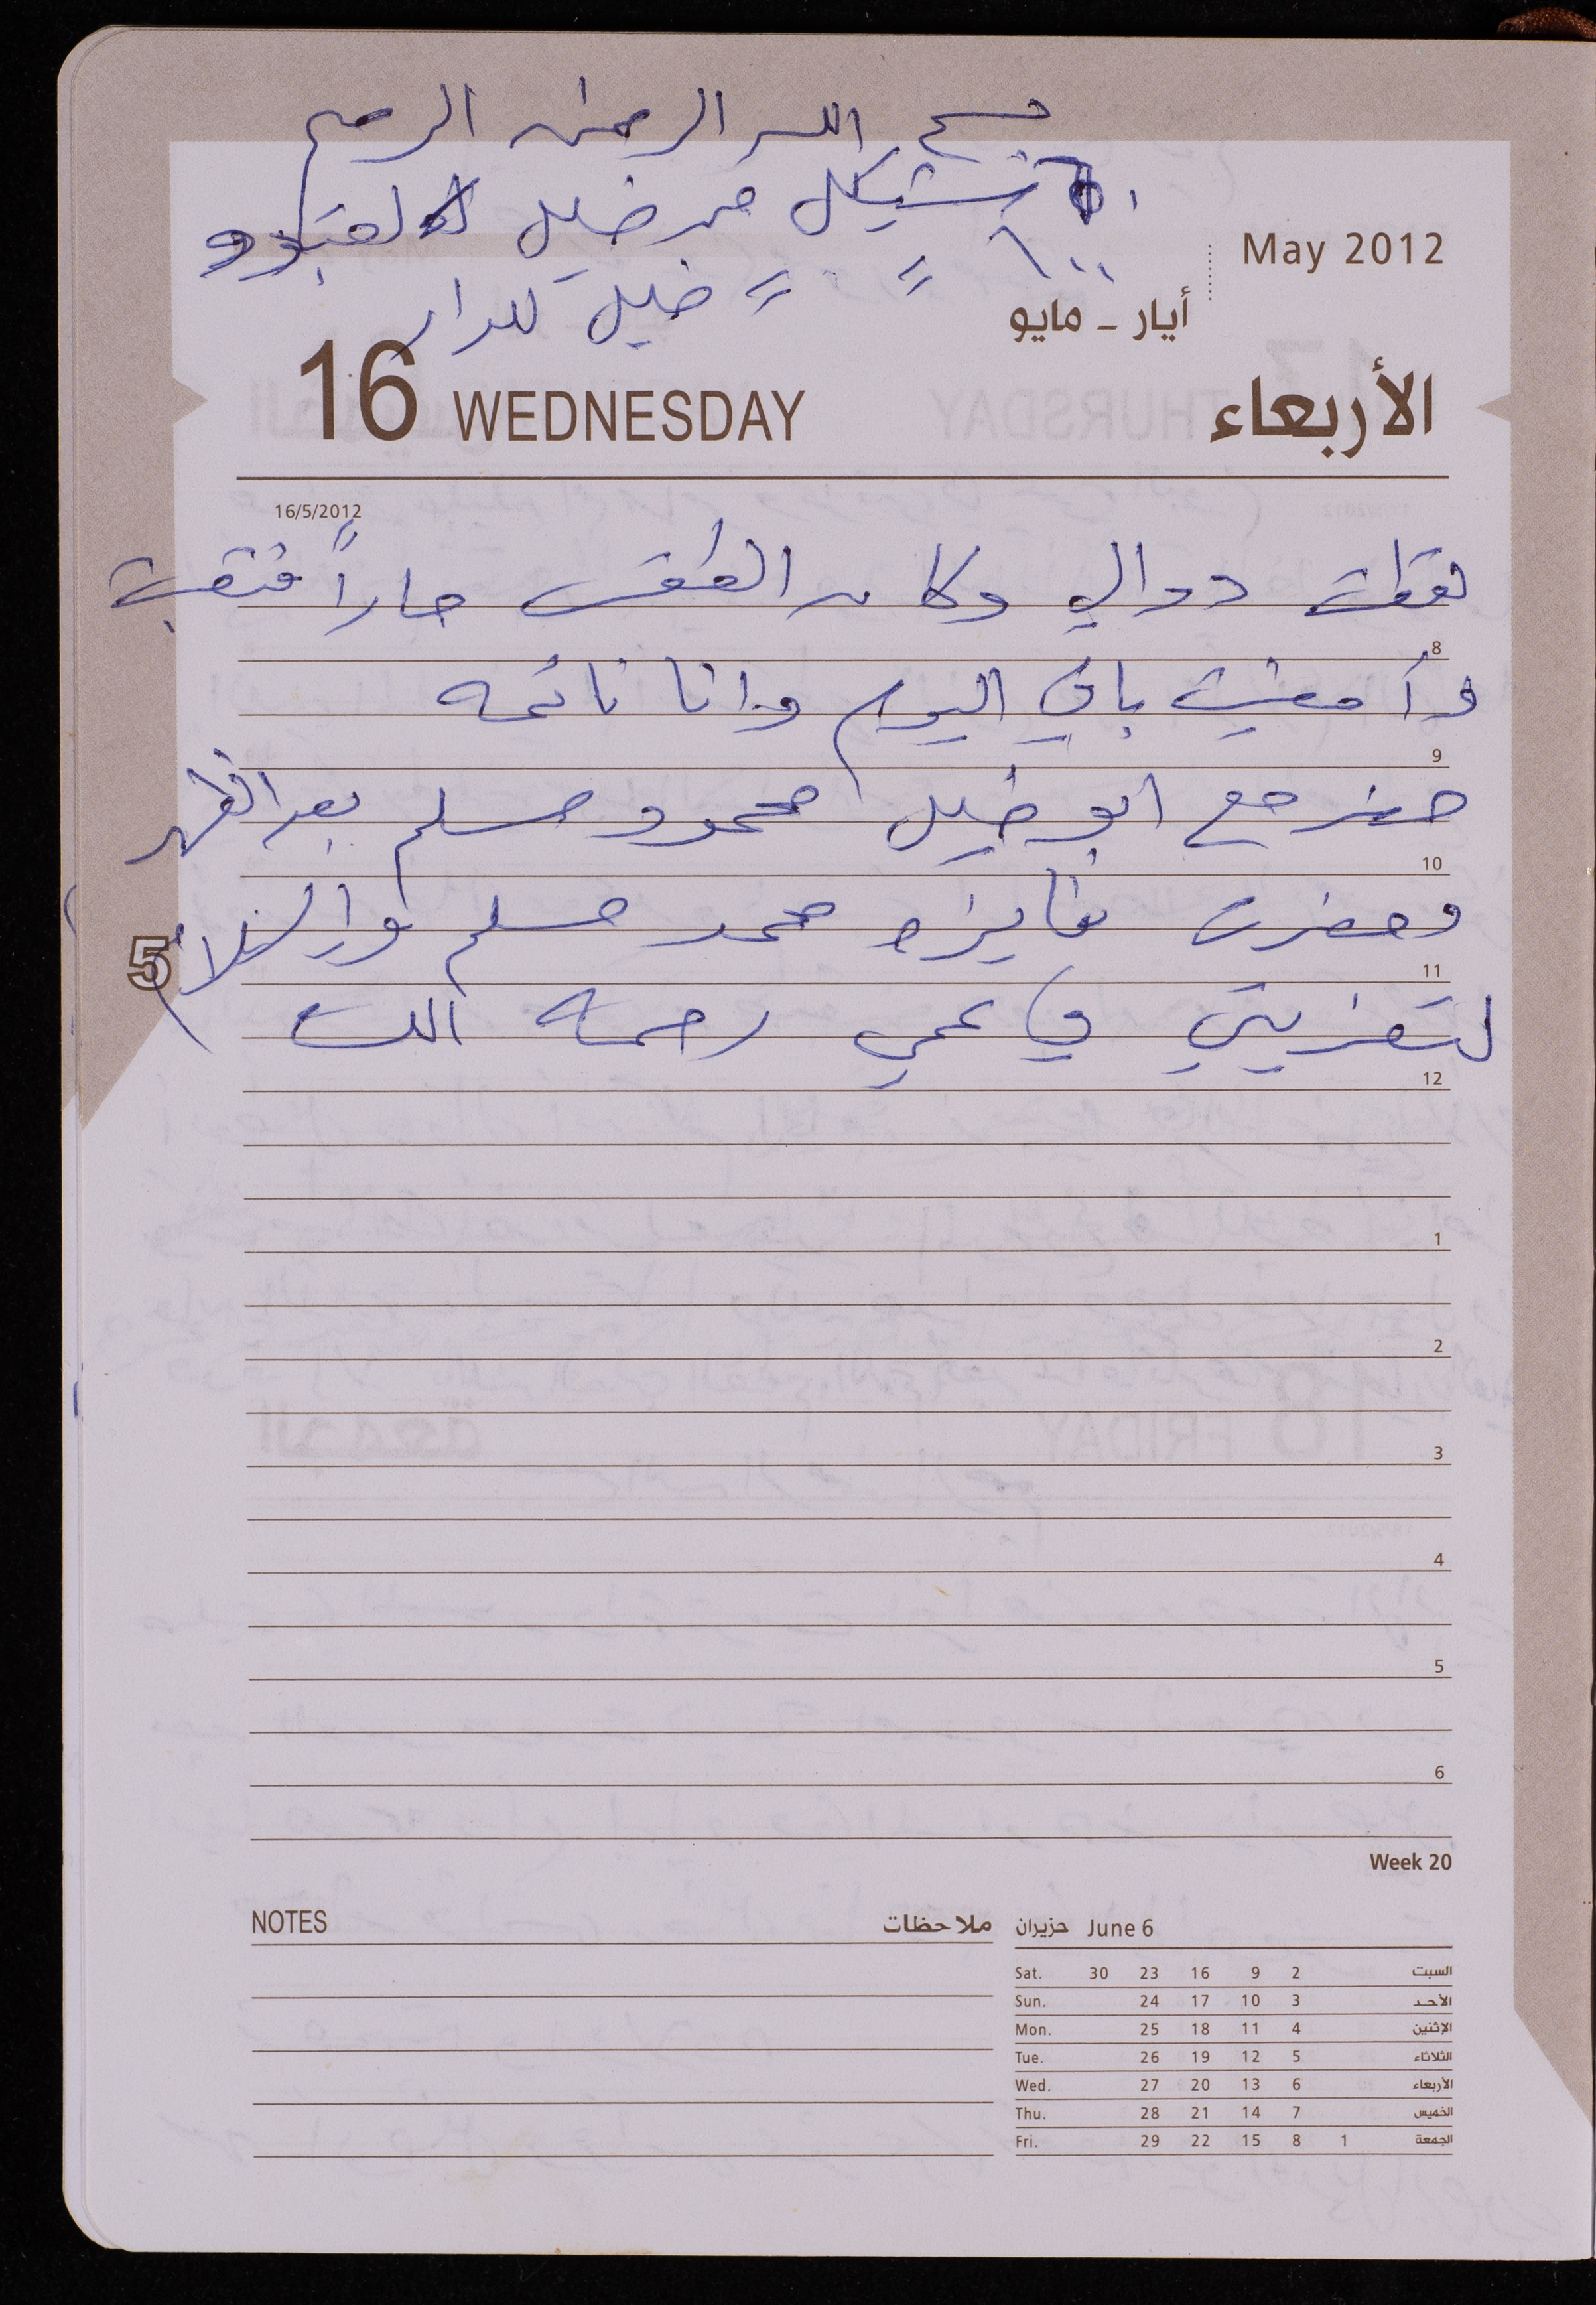 بسم الله الرحمن الرحيم
شيكل من خليل
١٠٠ = = خليل للدار
May 2012
أيار - مايو
16 WEDNESDAY الأربعاء
16/5/2012
لقطت دوالي وكان الطقس حاراً فتعبت
8
وأمضيت باقي اليوم وانا نائمه
9
حضر مع ابو خليل محمود مسلم بعد الظهر
10
وحضرت فايزه محمد مسلم
5
11
لتعزيتي في عمي رحمه الله
12
1
2
3
4
5
6
Week 20
NOTES ملاحظات
حزيران June 6
Sat. 30 23 16 9 2 السبت
Sun. 24 17 10 3 الأحد
Mon. 25 18 11 4 الإثنين
Tue. 26 19 12 5 الثلاثاء
Wed. 27 20 13 6 الأربعاء
Thu. 28 21 14 7 الخميس
Fri. 29 22 15 8 1 الجمعة